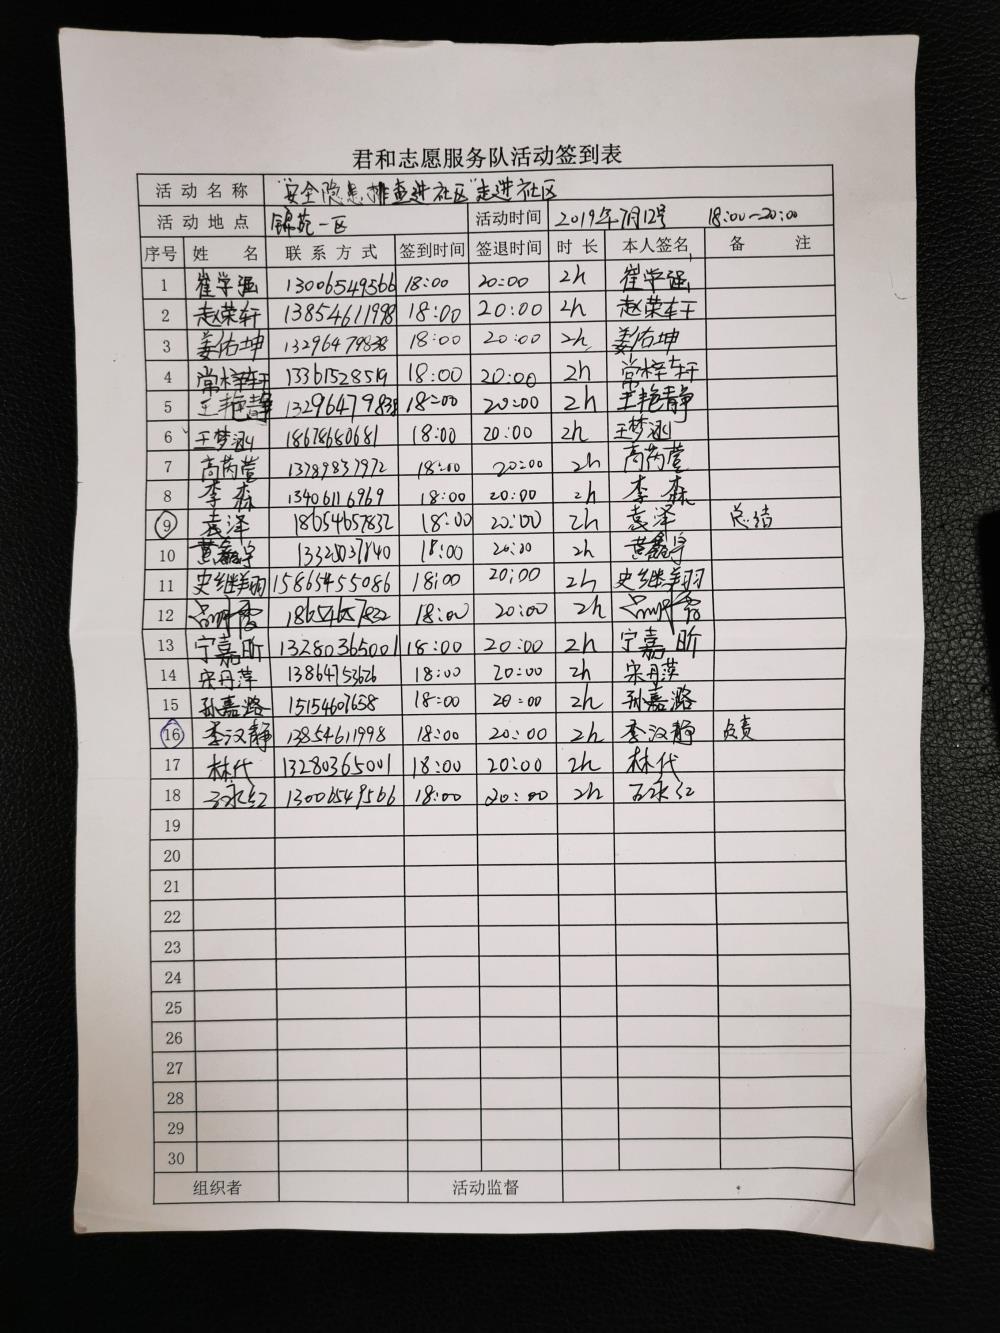 君和志愿服务队活动签到表
活动名称 "安全隐患排查进社区"走进社区
活动地点 锦苑一区 活动时间 2019年7月12号 18:00-20:00
序号 姓名 联系方式 签到时间 签退时间 时长 本人签名 备注
1 崔学强 13006549566 18:00 20:00 2h 崔学强
2 赵荣轩 13854611998 18:00 20:00 2h 赵荣轩
3 姜佑坤 13296479838 18:00 20:00 2h 姜佑坤
4 常梓轩 13361528519 18:00 20:00 2h 常梓轩
5 王艳静 13296479838 18:00 20:00 2h 王艳静
6 王梦涵 18678680681 18:00 20:00 2h 王梦涵
7 高芮萱 13789837972 18:00 20:00 2h 高芮萱
8 李森 13406116969 18:00 20:00 2h 李森
9 袁泽 18654657832 18:00 20:00 2h 袁泽 总结
10 黄鑫宇 18:00 20:00 2h 黄鑫宇
11 史继翔 15865455086 18:00 20:00 2h 史继翔
12 18654657832 18:00 20:00 2h
13 宁嘉昕 13280365001 18:00 20:00 2h 宁嘉昕
14 宋丹萍 13864753626 18:00 20:00 2h 宋丹萍
15 孙嘉潞 15154607658 18:00 20:00 2h 孙嘉潞
16 李汉静 13854611998 18:00 20:00 2h 李汉静 负责
17 林代 13280365001 18:00 20:00 2h 林代
18 石永红 13006549566 18:00 20:00 2h 石永红
19
20
21
22
23
24
25
26
27
28
29
30
组织者 活动监督